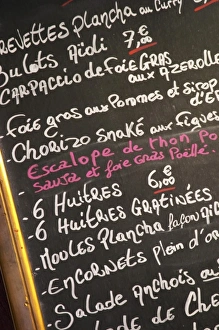 REVETTES PLANCHA au CURRY
BuLots Aïoli 7,€
CARPACCio de FOiE GRAS
aux AZEROLLE
-Foie gras aux Pommes et Sirop
-CHORizo SNAKé aux Figues
-Escalope de thon Po
sauza et foie Gras Poëllé.
- 6 HuîtRES 6,00
- 6 HuîtRES GRATiNÉES
-MOULES PLANCHA façon
-ENCORNETS PLEiN d'or
- SALADE ANCHOiS au
LADE de CHE